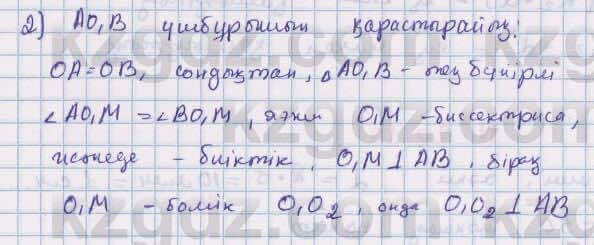 2) AO₁B үшбұрышын қарастырайық:
OA=OB, сондықтан, △AO₁B - тең бүйірлі
∠AO₁M = ∠BO₁M, яғни O₁M -биссектриса,
немесе - биіктік, O₁M⊥AB, бірақ
O₁M - бөлік O₁O₂, онда O₁O₂⊥AB
kzgdz.com